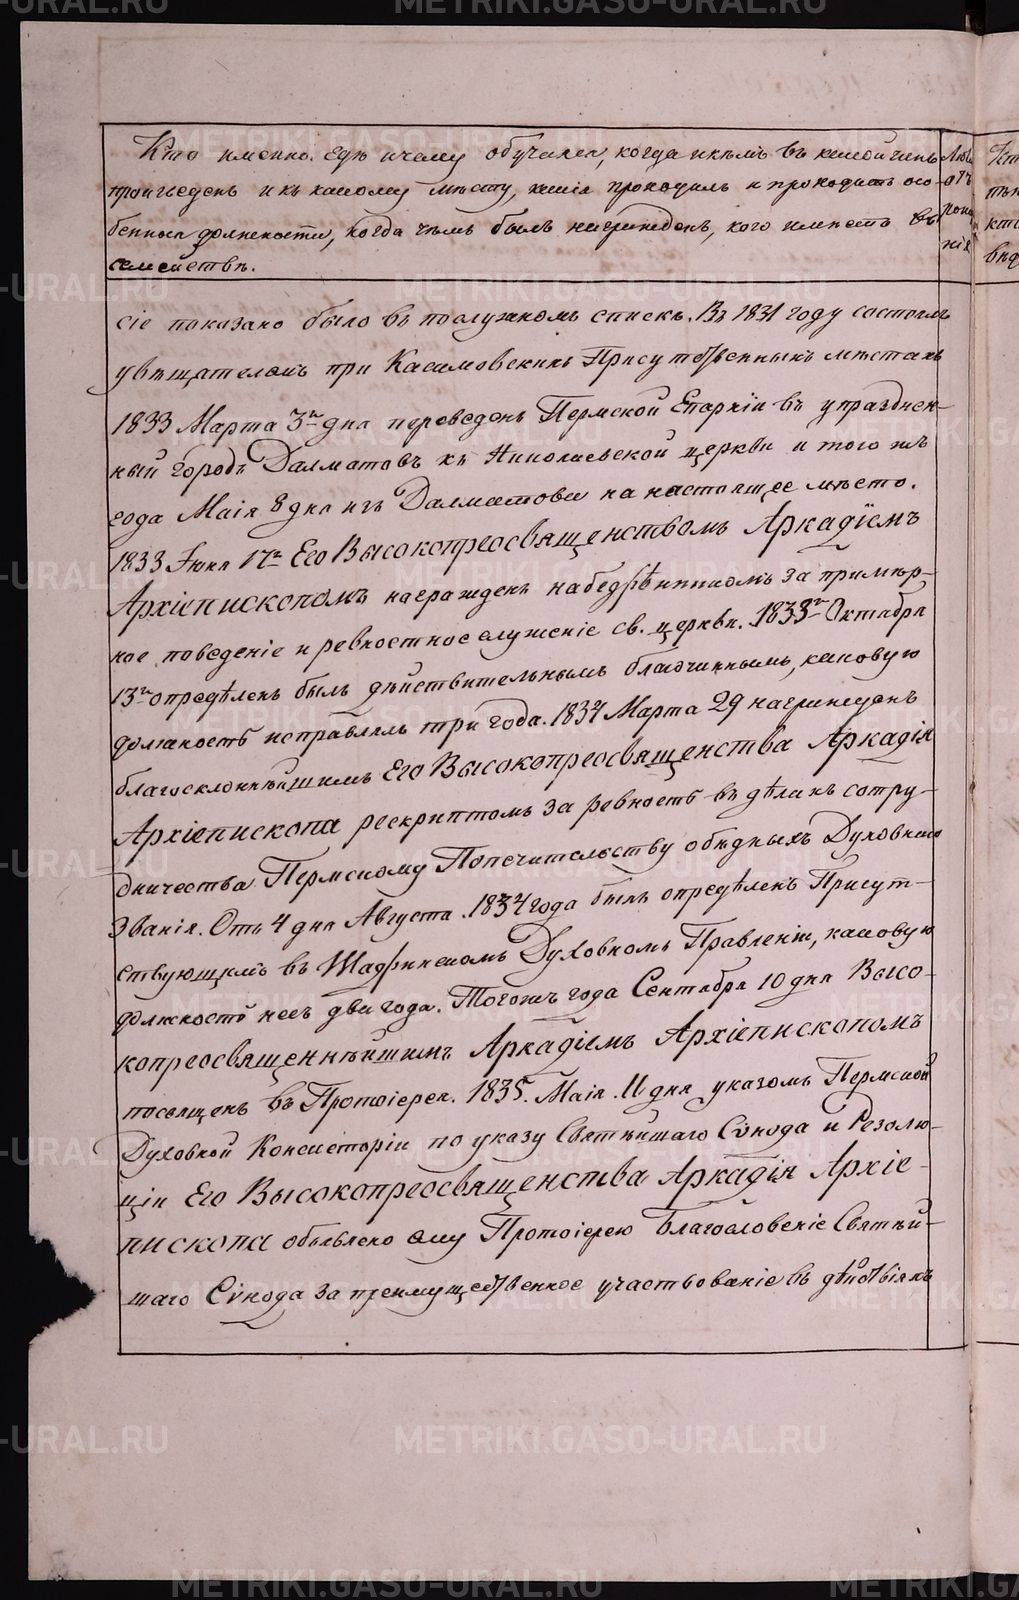 Кто именно. Гдѣ и чему обучался, когда и кѣмъ въ какой чинъ
произведенъ и къ какому мѣсту, какія проходилъ и проходитъ осо-
бенныя должности, когда чѣмъ былъ награжденъ, кого имѣетъ въ
семействѣ.
сіе показано было въ послужномъ спискѣ. Въ 1831 году состоялъ
увѣщателемъ при Касимовскихъ Присутственныхъ мѣстахъ
1833 Марта 3го дня переведенъ Пермской Епархіи въ упразднен-
ный городъ Далматовъ къ Николаевской церкви и того жъ
года Маія 8 дня изъ Далматова на настоящее мѣсто.
1833 Іюня 17го Его Высокопреосвященствомъ Аркадіемъ
Архіепископомъ награжденъ набедренникомъ за примѣр-
ное поведеніе и ревностное служеніе св. церкви. 1833го Октября
13го опредѣленъ былъ дѣйствительнымъ благочиннымъ, каковую
должность исправлялъ три года. 1834 Марта 29 награжденъ
благосклоннѣйшимъ Его Высокопреосвященства Аркадія
Архіепископа рескриптомъ за ревность въ дѣлахъ сотру-
дничества Пермскому Попечительству о бѣдныхъ Духовнаго
Званія. Отъ 4 дня Августа 1834 года былъ опредѣленъ Присут-
ствующимъ въ Шадринскомъ Духовномъ Правленіи, каковую
должность несъ два года. Тогожъ года Сентября 10 дня Высо-
копреосвященнѣйшимъ Аркадіемъ Архіепископомъ
посвященъ въ Протоіерея. 1835. Маія 11 дня указомъ Пермской
Духовной Консисторіи по указу Святѣйшаго Сѵнода и Резолю-
ціи Его Высокопреосвященства Аркадія Архіе-
пископа объявлено ему Протоіерею Благословеніе Святѣй-
шаго Сѵнода за преимущественное участвованіе въ дѣйствіяхъ
METRIKI.GASO-URAL.RU